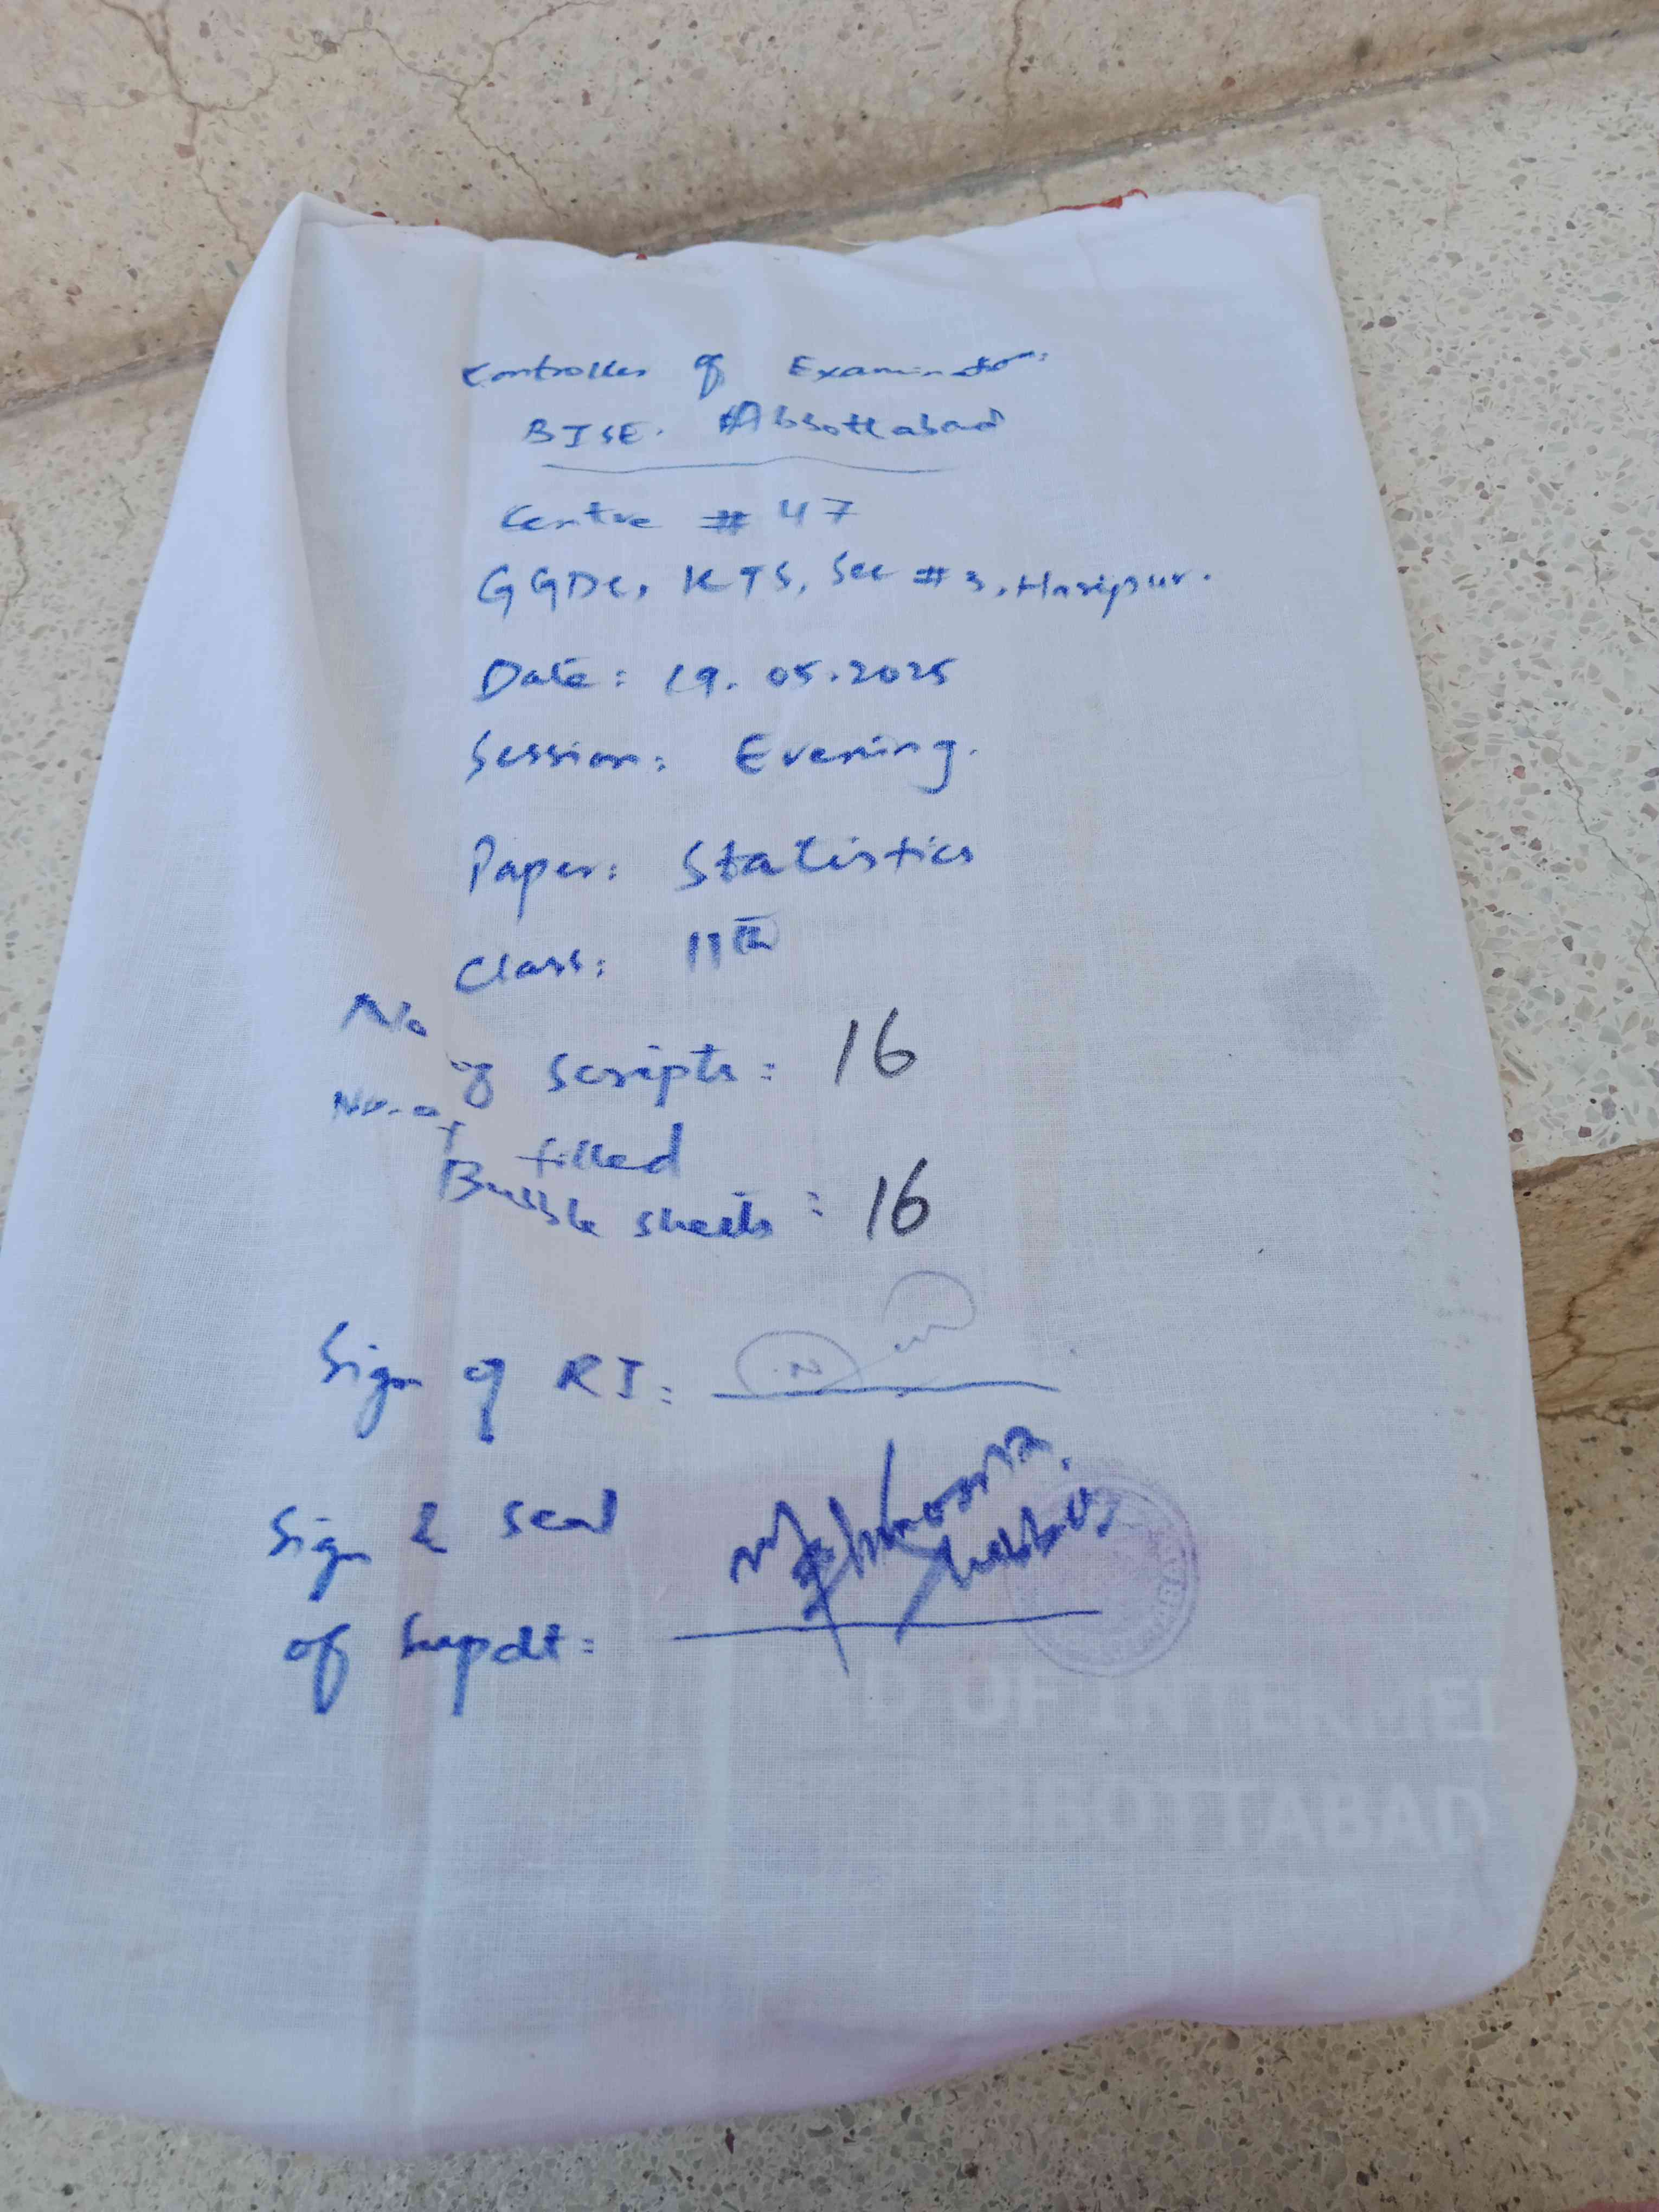 Controller of Examination:
BISE. Abbottabad
Centre # 47
GGDC, KTS, Sec # 3, Haripur.
Date: 19.05.2025
Session: Evening.
Paper: Statistics
Class: 11th
No of scripts: 16
No. of filled
Bubble sheets: 16
Sign of RI:
Sign & seal
of Supdt:
D OF INTERMEI
BOTTABAD